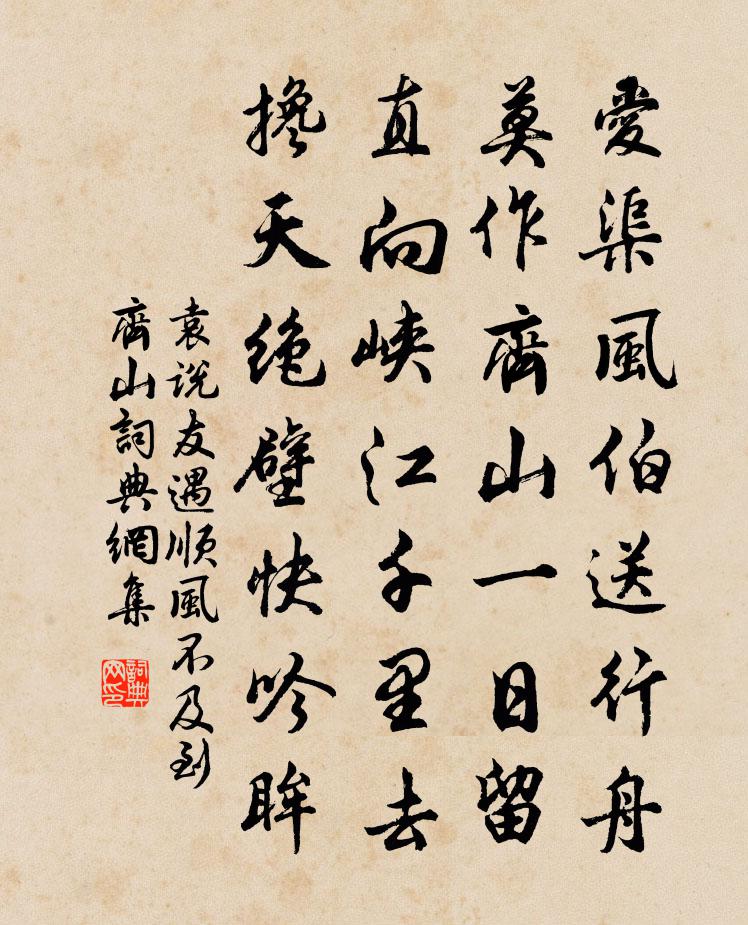 愛渠風伯送行舟
莫作齊山一日留
直向峽江千里去
攙天絶壁快吟眸
袁説友遇順風不及到
齊山詞典網集
詞典網印